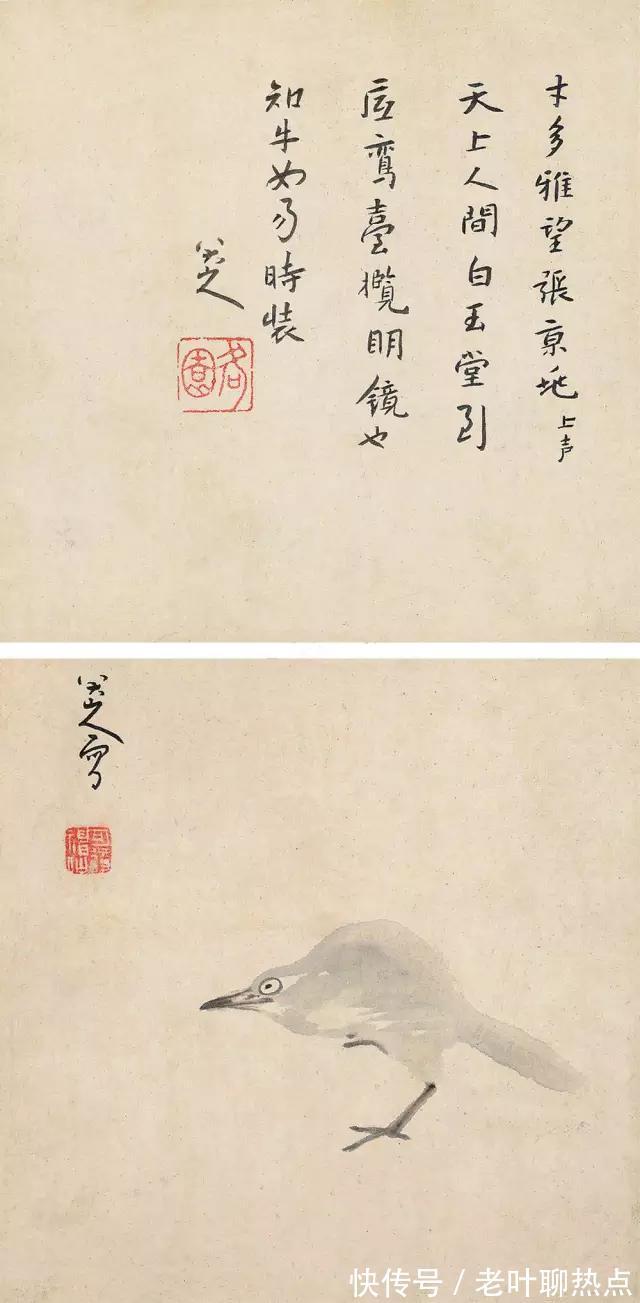 才多雅望張京兆上声
天上人間白玉堂到
底鸞臺攬明鏡也
知牛女易時裝
八大山人
八大山人寫
快传号／老叶聊热点